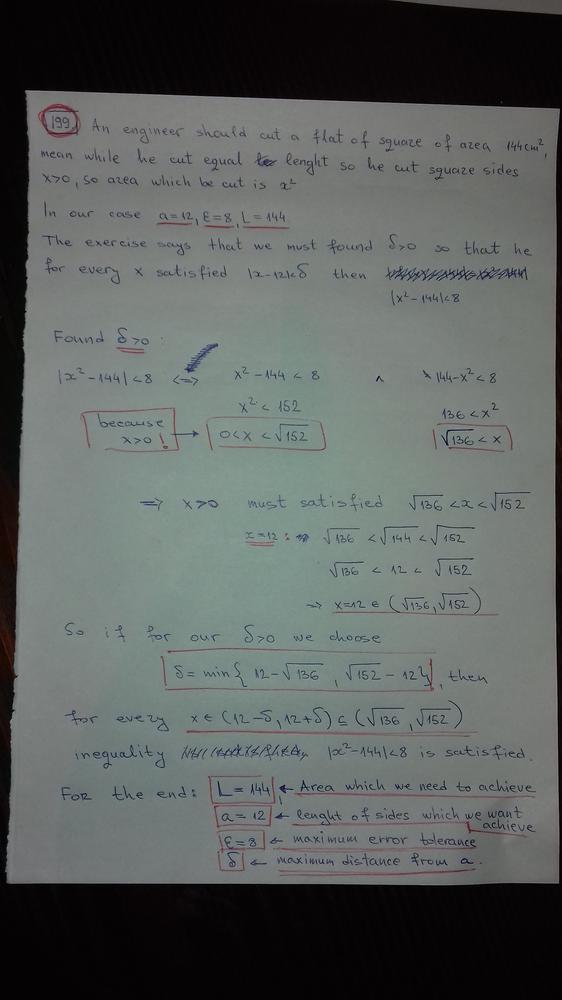 199 An engineer should cut a flat of square of area 144cm²,
mean while he cut equal lenght so he cut square sides
x>0, so area which be cut is x²
In our case a=12, ε=8, L=144
The exercise says that we must found δ>0 so that he
for every x satisfied |x-12|<δ then
|x²-144|<8
Found δ>0:
|x²-144|<8 <=> x²-144<8 ∧ 144-x²<8
x²<152 136<x²
because x>0! → 0<x<√152 √136<x
=> x>0 must satisfied √136<x<√152
x=12: => √136<√144<√152
√136<12<√152
=> x=12∈(√136,√152)
So if for our δ>0 we choose
δ=min{12-√136, √152-12}, then
for every x∈(12-δ,12+δ)⊆(√136,√152)
inequality |x²-144|<8 is satisfied.
For the end: L=144 ← Area which we need to achieve
a=12 ← lenght of sides which we want achieve
ε=8 ← maximum error tolerance
δ ← maximum distance from a.